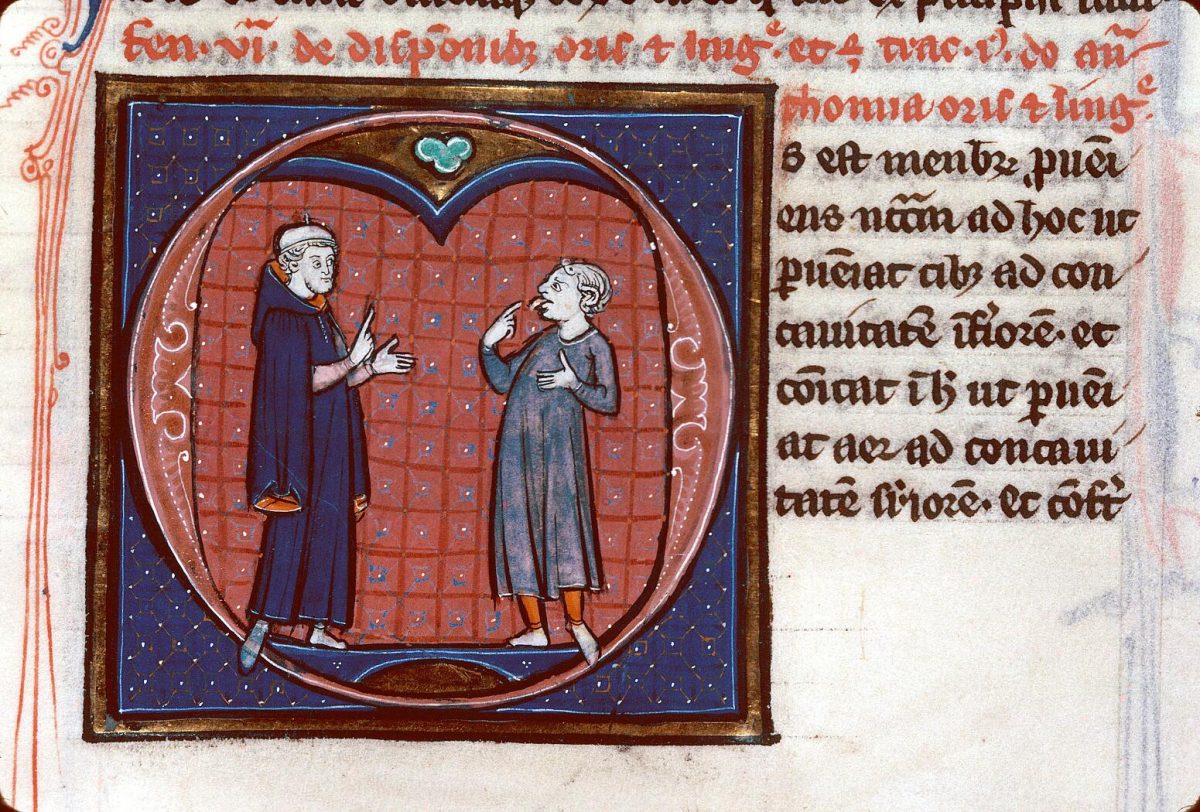 fen· vi͞· de dispo͞nibꝫ oris ⁊ lingᵉ· et ꝝ trac· i͞· do an͞
thomia oris ⁊ lingᵉ·
s est menbꝝ ꝑuen͞i
ens nc͞ca͞m ad hoc ut
ꝑuen͞iat cibꝫ ad con
cauitate͞ i͞fͥiore͞· et
co͞icat i͞h ut ꝑuen͞i
at aer ad concaui
tate͞ sꝑͥiore͞· Et co͞stͥ